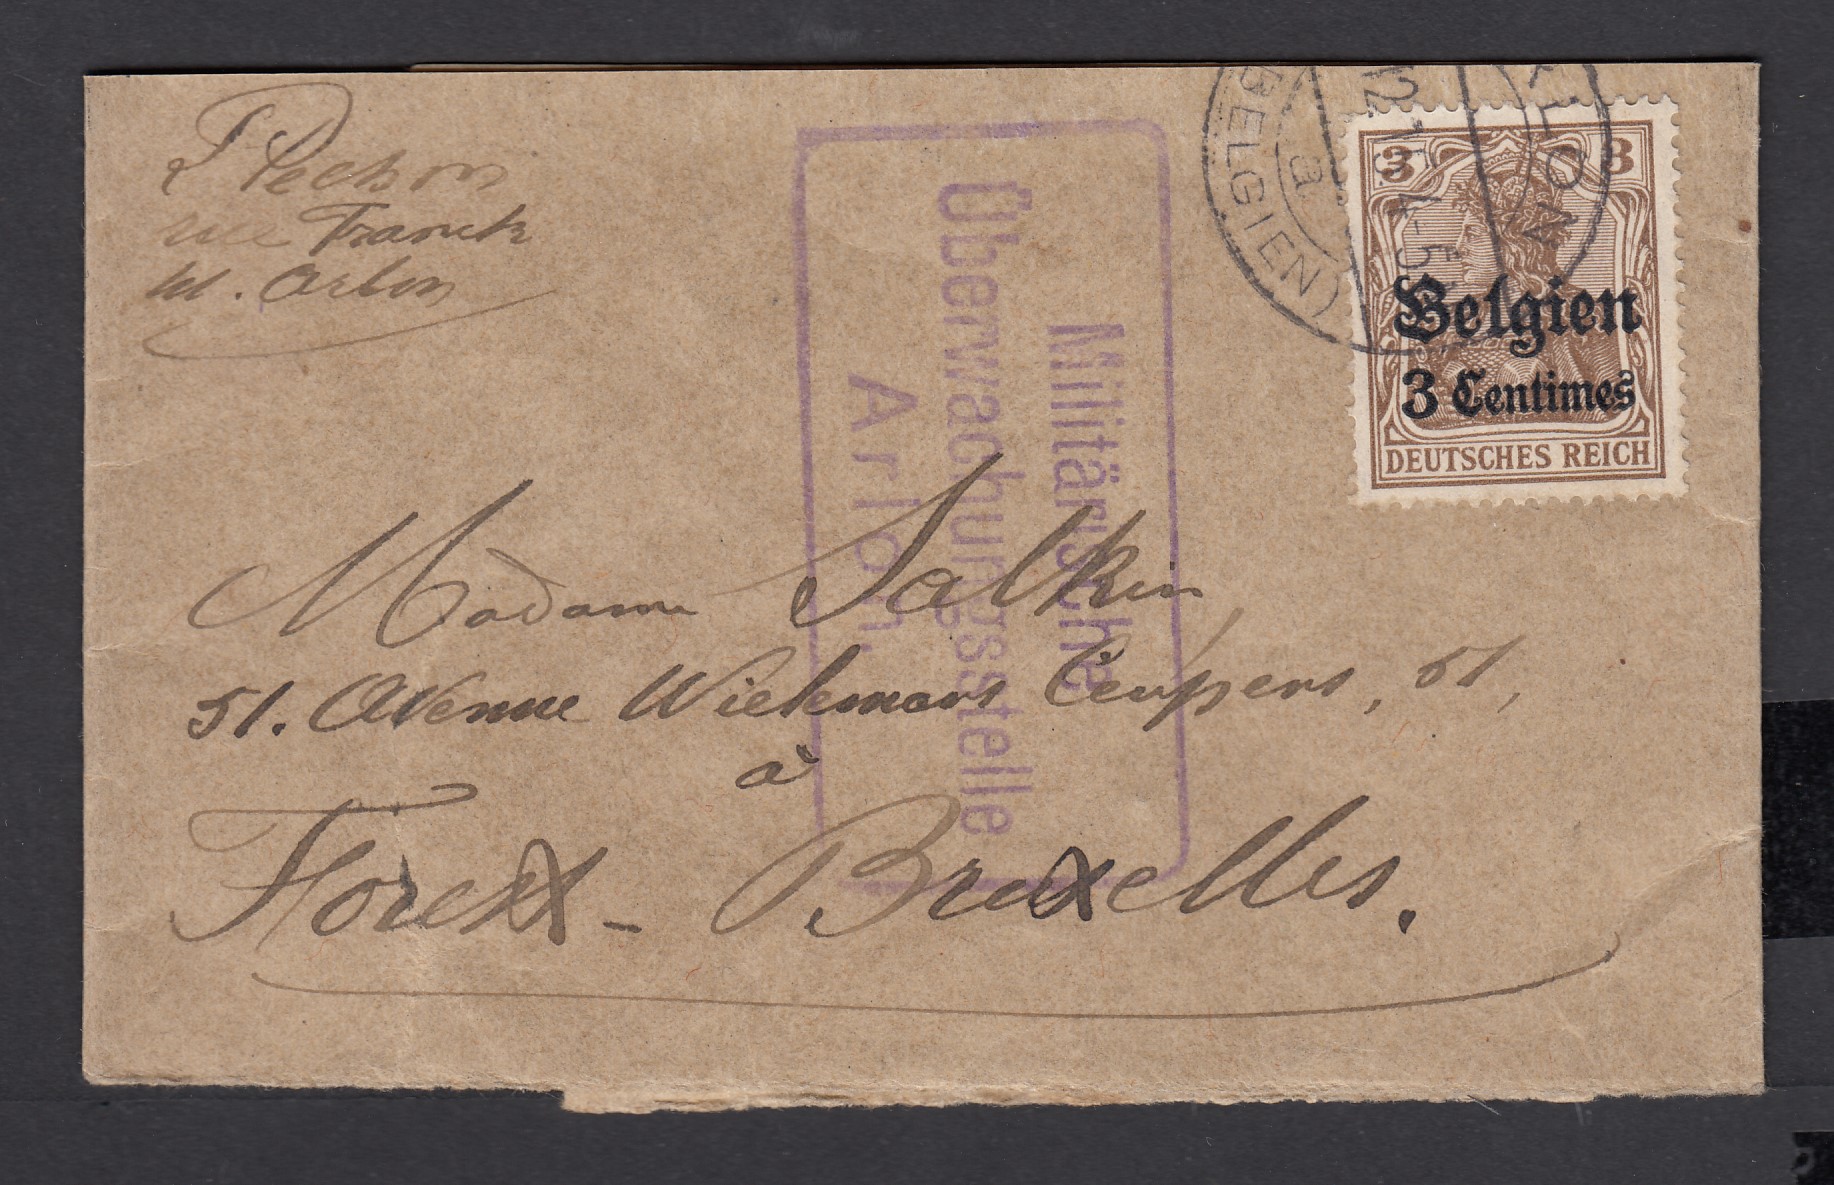 Pechon
rue Franck
Arlon
Militärische
Überwachungsstelle
Arlon.
RLON
12 15 4-5
a
(BELGIEN)
3 3
Belgien
3 Centimes
DEUTSCHES REICH
Madame Salkin
51. Avenue Wielemans Ceuppens, 51,
à
Forest - Bruxelles.